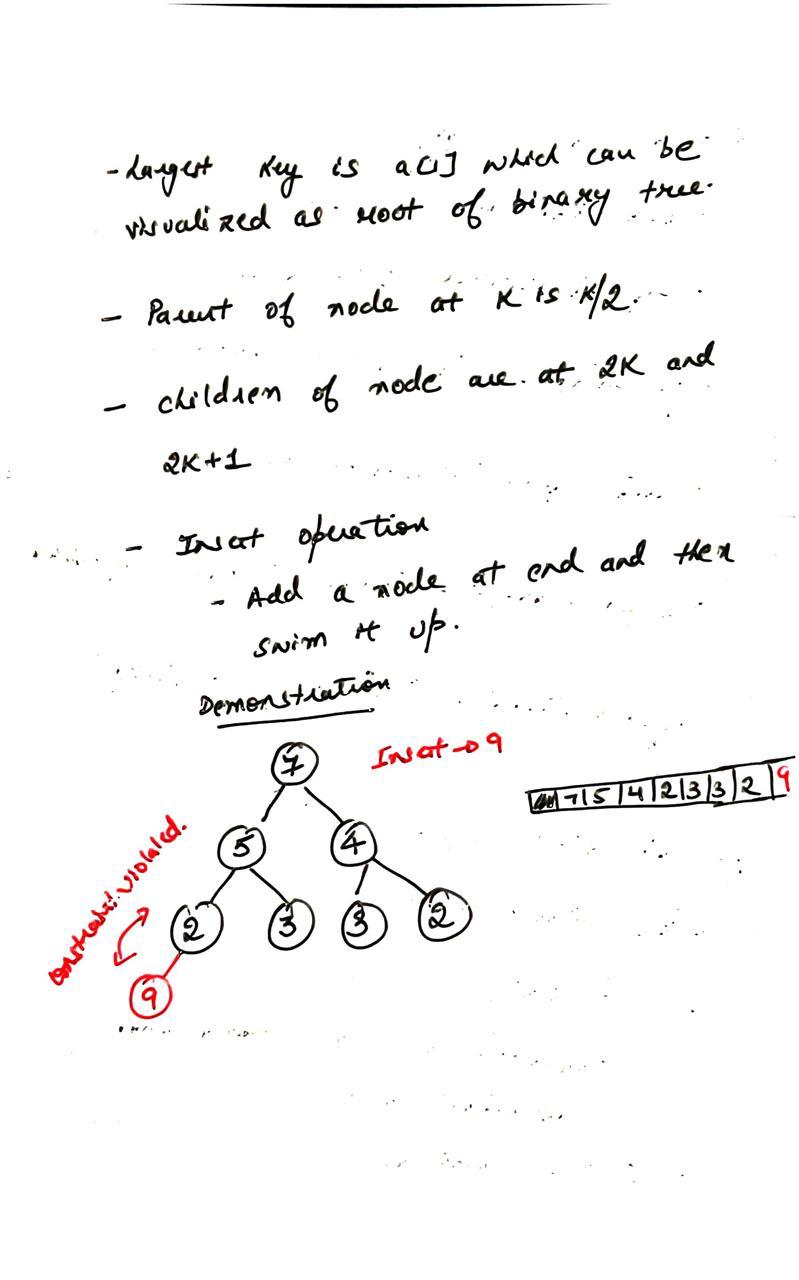 - Largest key is a[1] which can be
visualized as root of binary tree.
- Parent of node at K is K/2.
- children of node are at 2K and
2K+1
- Insert operation
- Add a node at end and then
swim it up.
Demonstration
Insert → 9
7
7 5 4 2 3 3 2 9
5 4
constraint violated.
2 3 3 2
9